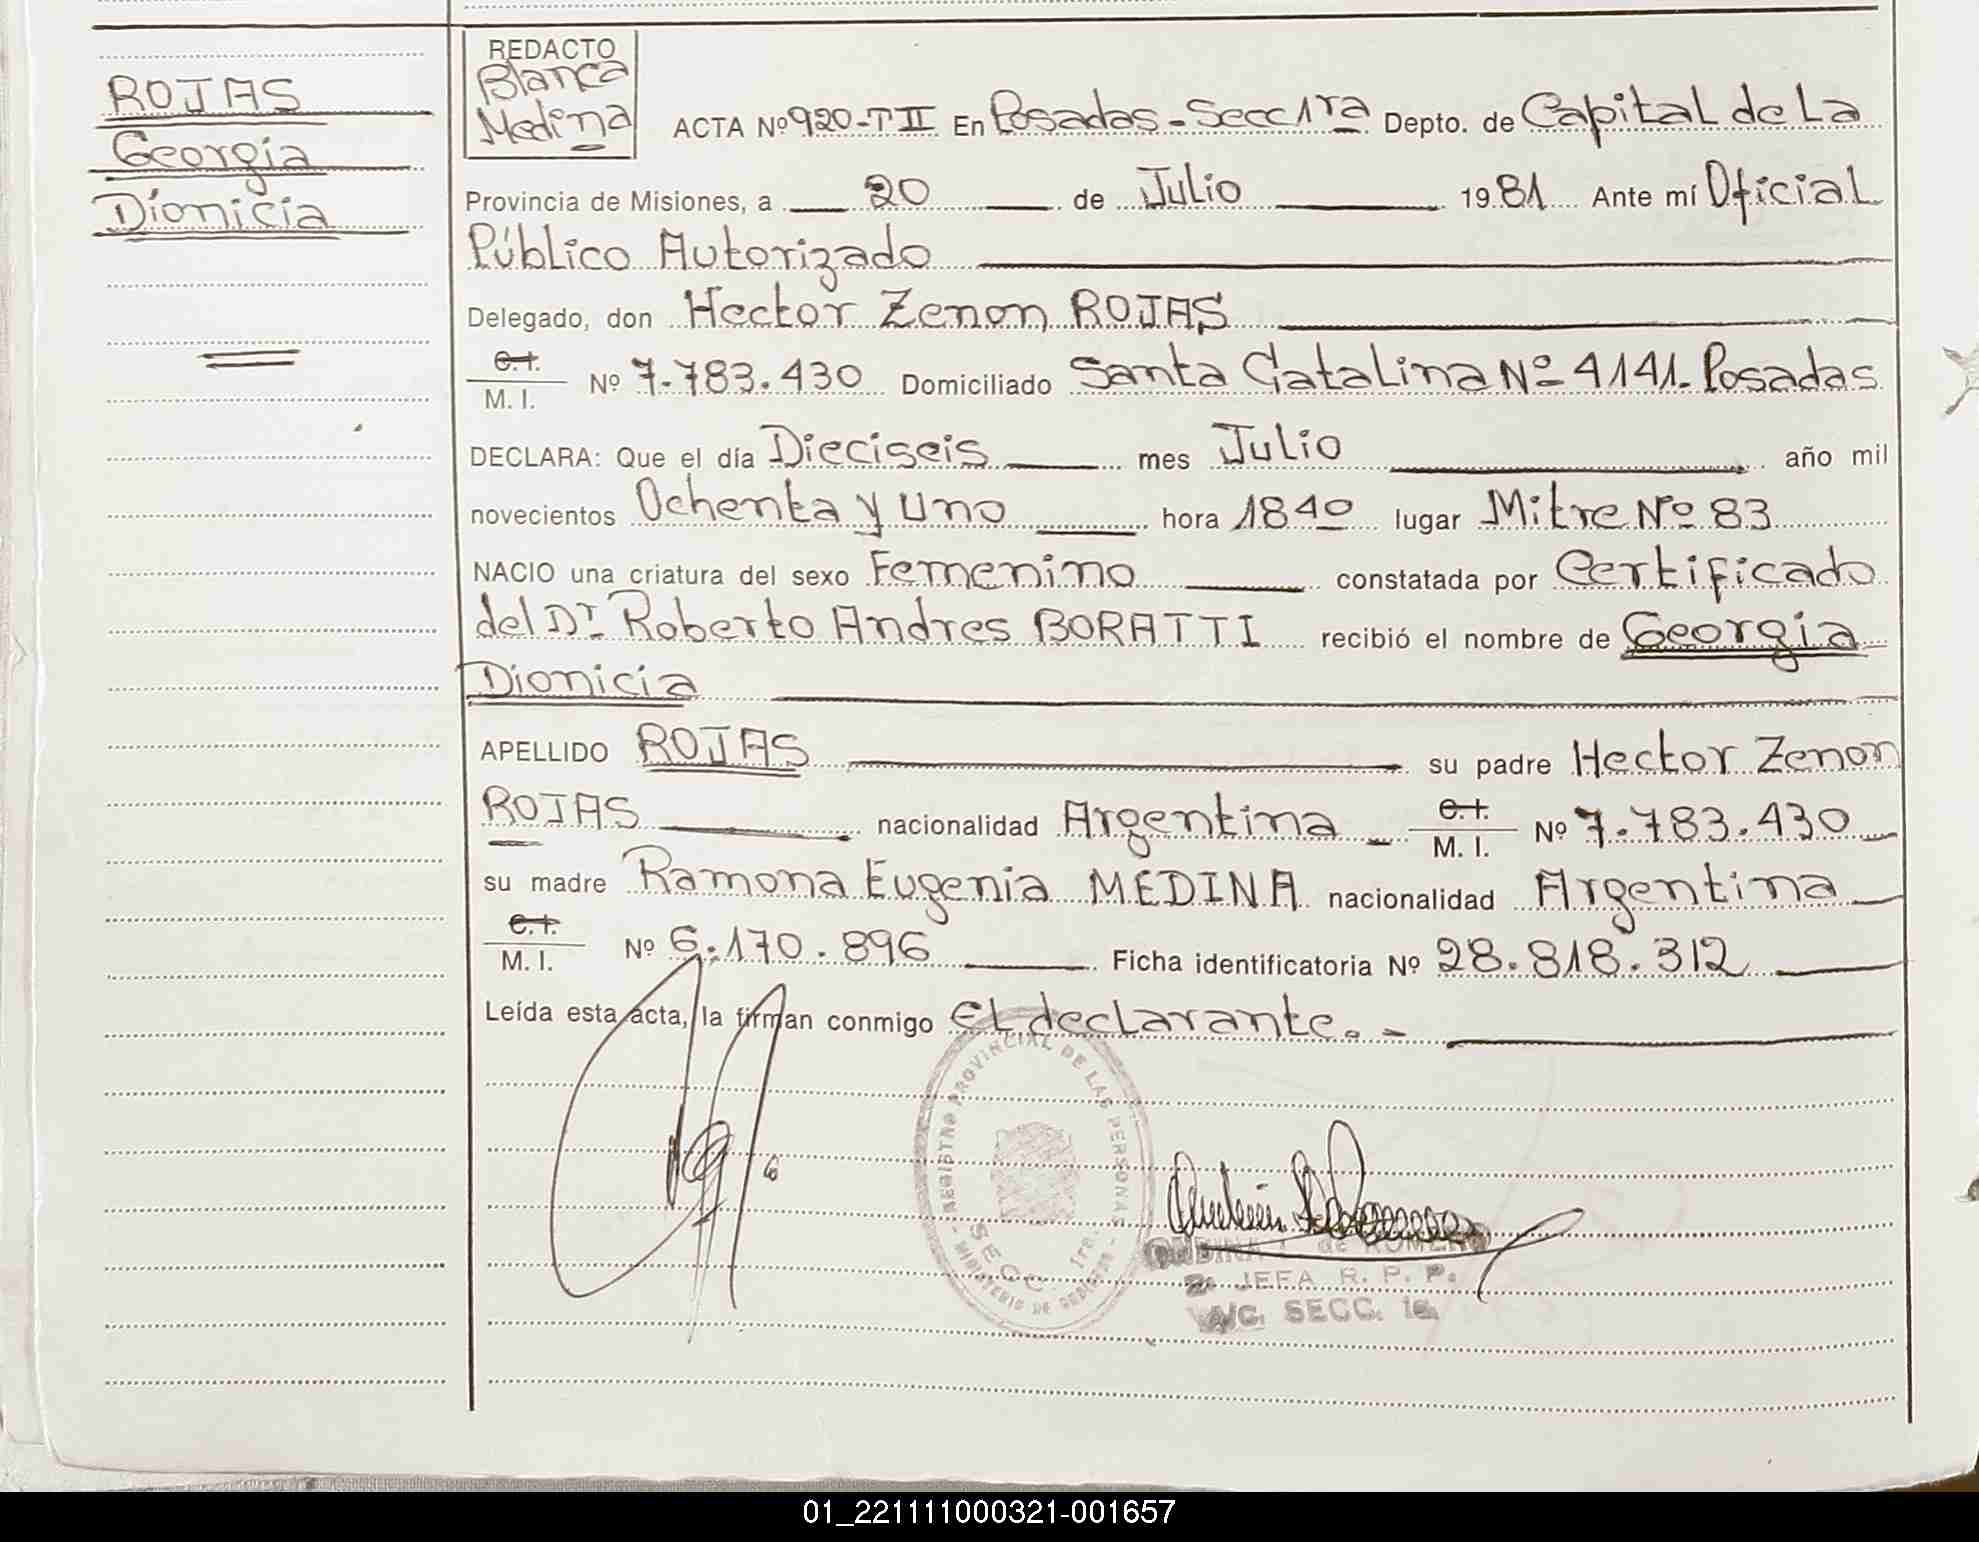 ROJAS
Georgia
Dionicia
REDACTO
Blanca
Medina
ACTA Nº 920-TII En Posadas - Secc 1ra Depto. de Capital de La
Provincia de Misiones, a 20 de Julio 1981 Ante mí Oficial
Público Autorizado
Delegado, don Hector Zenon ROJAS
C.I.
M. I. Nº 7.783.430 Domiciliado Santa Catalina Nº 4141. Posadas
DECLARA: Que el día Dieciseis mes Julio año mil
novecientos Ochenta y uno hora 1840 lugar Mitre Nº 83
NACIO una criatura del sexo Femenino constatada por Certificado
del Dr. Roberto Andres BORATTI recibió el nombre de Georgia
Dionicia
APELLIDO ROJAS su padre Hector Zenon
ROJAS nacionalidad Argentina C.I. M. I. Nº 7.783.430
su madre Ramona Eugenia MEDINA nacionalidad Argentina
C.I.
M. I. Nº 6.170.896 Ficha identificatoria Nº 28.818.312
Leída esta acta, la firman conmigo El declarante. -
REGISTRO PROVINCIAL DE LAS PERSONAS
SECC. 1ra.
MINISTERIO DE GOBIERNO
de ROMERO
2. JEFA R. P. P.
SECC. 1a.
01_221111000321-001657